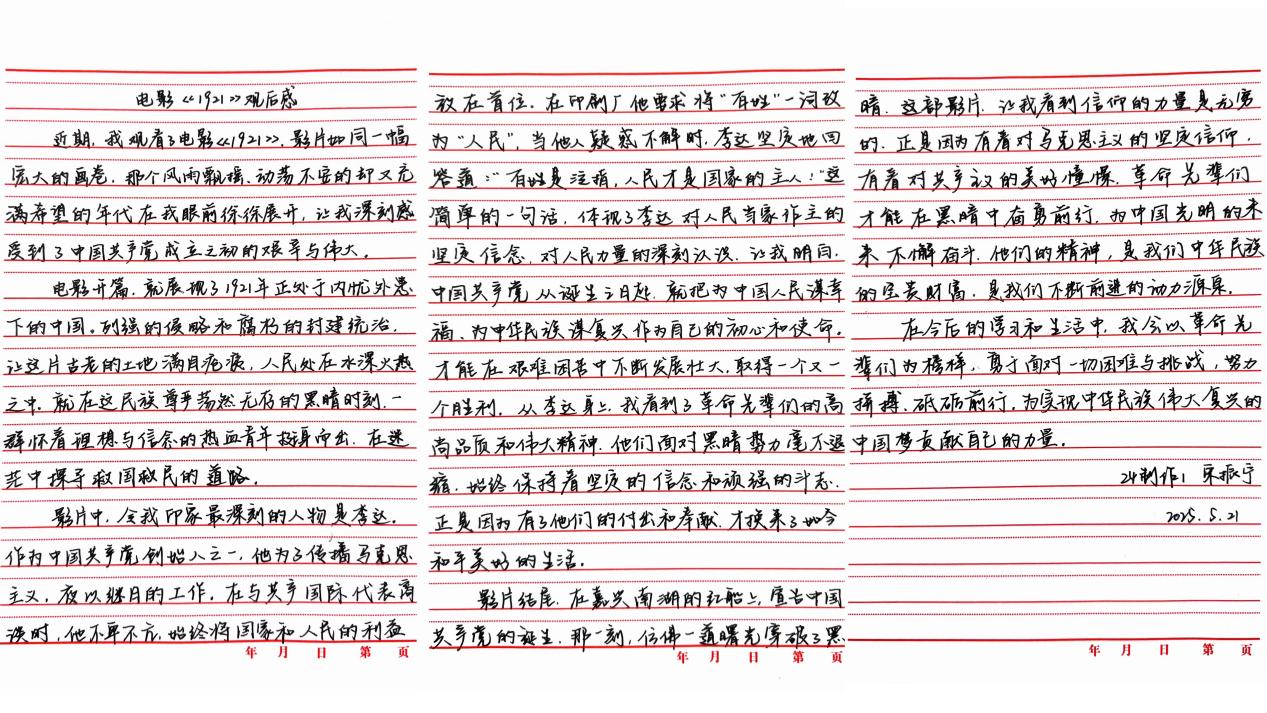 电影《1921》观后感
近期，我观看了电影《1921》，影片如同一幅
宏大的画卷，那个风雨飘摇、动荡不安的却又充
满希望的年代在我眼前徐徐展开，让我深刻感
受到了中国共产党成立之初的艰辛与伟大。
电影开篇，就展现了1921年正处于内忧外患
下的中国。列强的侵略和腐朽的封建统治，
让这片古老的土地满目疮痍，人民处在水深火热
之中。就在这民族尊严荡然无存的黑暗时刻，一
群怀着理想与信念的热血青年挺身而出，在迷
茫中探寻救国救民的道路。
影片中，令我印象最深刻的人物是李达。
作为中国共产党创始人之一，他为了传播马克思
主义，夜以继日的工作。在与共产国际代表商
谈时，他不卑不亢，始终将国家和人民的利益
年 月 日 第 页
放在首位。在印刷厂他要求将“百姓”一词改
为“人民”，当他人疑惑不解时，李达坚定地回
答道：“百姓是泛指，人民才是国家的主人！”这
简单的一句话，体现了李达对人民当家作主的
坚定信念，对人民力量的深刻认识，让我明白，
中国共产党从诞生之日起，就把为中国人民谋幸
福、为中华民族谋复兴作为自己的初心和使命。
才能在艰难困苦中不断发展壮大，取得一个又一
个胜利。从李达身上，我看到了革命先辈们的高
尚品质和伟大精神，他们面对黑暗势力毫不退
缩，始终保持着坚定的信念和顽强的斗志，
正是因为有了他们的付出和奉献，才换来了如今
和平美好的生活。
影片结尾，在嘉兴南湖的红船上，宣告中国
共产党的诞生，那一刻，仿佛一道曙光穿破了黑
年 月 日 第 页
暗，这部影片，让我看到信仰的力量是无穷
的，正是因为有着对马克思主义的坚定信仰，
有着对共产主义的美好憧憬，革命先辈们
才能在黑暗中奋勇前行，为中国光明的未
来不懈奋斗，他们的精神，是我们中华民族
的宝贵财富，是我们不断前进的动力源泉。
在今后的学习和生活中，我会以革命先
辈们为榜样，勇于面对一切困难与挑战，努力
拼搏、砥砺前行，为实现中华民族伟大复兴的
中国梦贡献自己的力量。
24制作1 宋振宇
2025.5.21
年 月 日 第 页